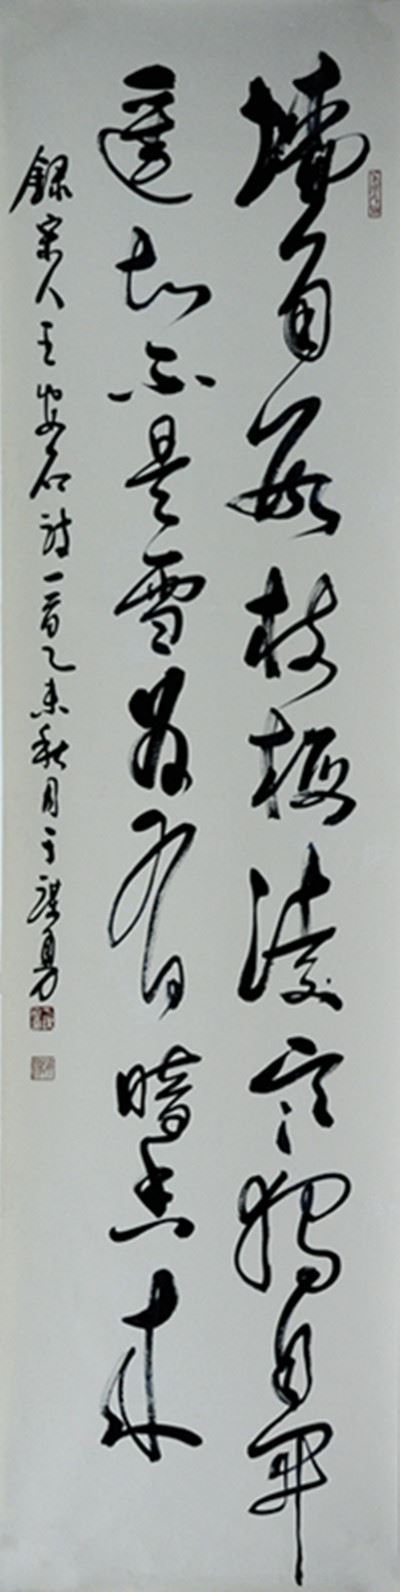 墙角数枝梅凌寒独自开
遥知不是雪为有暗香来
录宋人王安石诗一首乙未秋月于谋勇